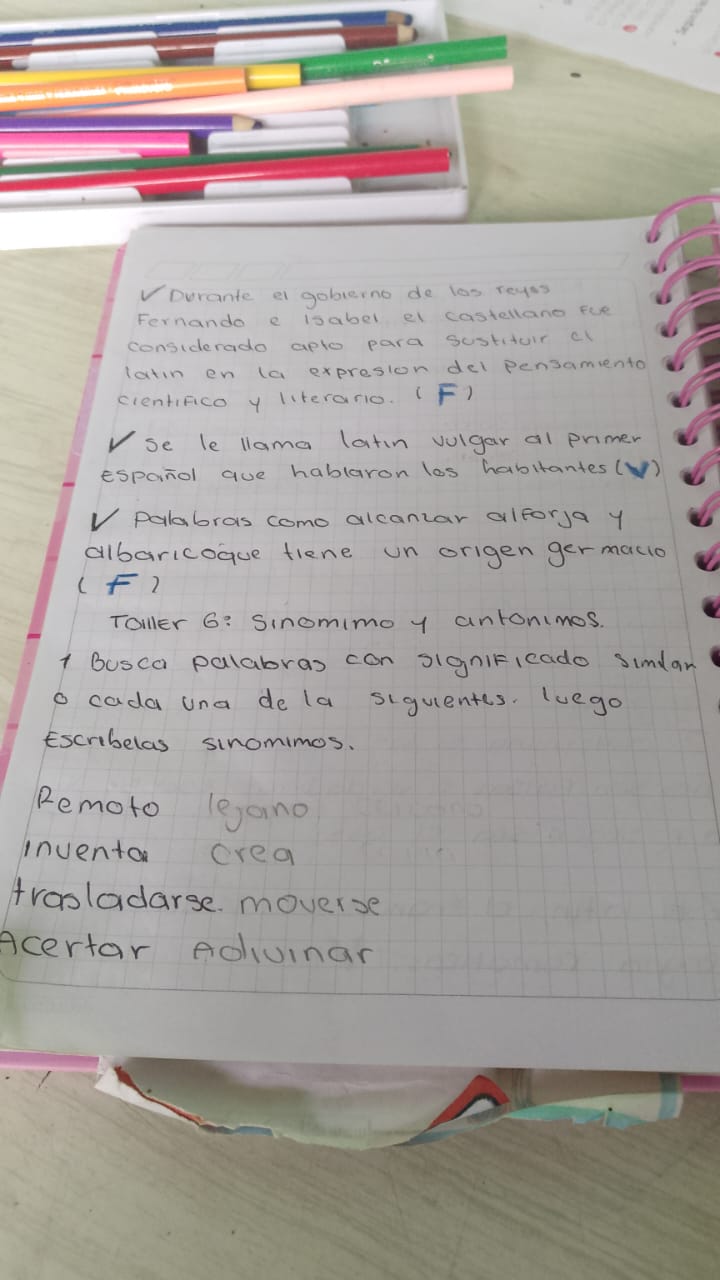 ✓ Durante el gobierno de los reyes
Fernando e Isabel, el castellano fue
considerado apto para sustituir el
latin en la expresion del pensamiento
cientifico y literario. (F)
✓ se le llama latin vulgar al primer
Español que hablaron los habitantes (V)
✓ palabras como alcanzar alforja y
albaricoque tiene un origen germacio
(F)
Taller 6: Sinomimo y antonimos.
1 Busca palabras con significado similar
o cada una de la siguientes. luego
Escribelas sinomimos.
Remoto lejano
inventa crea
trasladarse. moverse
Acertar Adivinar